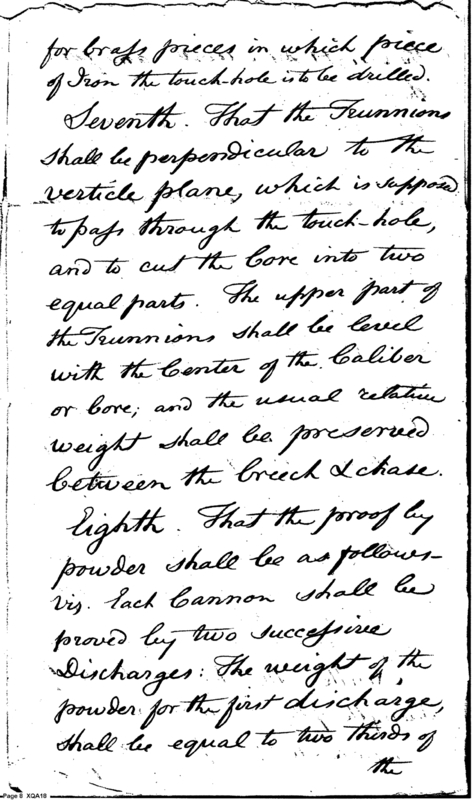 for brass pieces in which piece
of Iron the touch-hole is to be drilled.
Seventh. That the Trunnions
shall be perpendicular to the
verticle plane, which is supposed
to pass through the touch-hole,
and to cut the bore into two
equal parts. The upper part of
the Trunnions shall be level
with the Center of the Caliber
or bore; and the usual relative
weight shall be preserved
between the breech & chase.
Eighth. That the proof by
powder shall be as follows-
viz. Each Cannon shall be
proved by two successive
Discharges: The weight of the
powder for the first discharge,
shall be equal to two thirds of
the
Page 8 XQA18